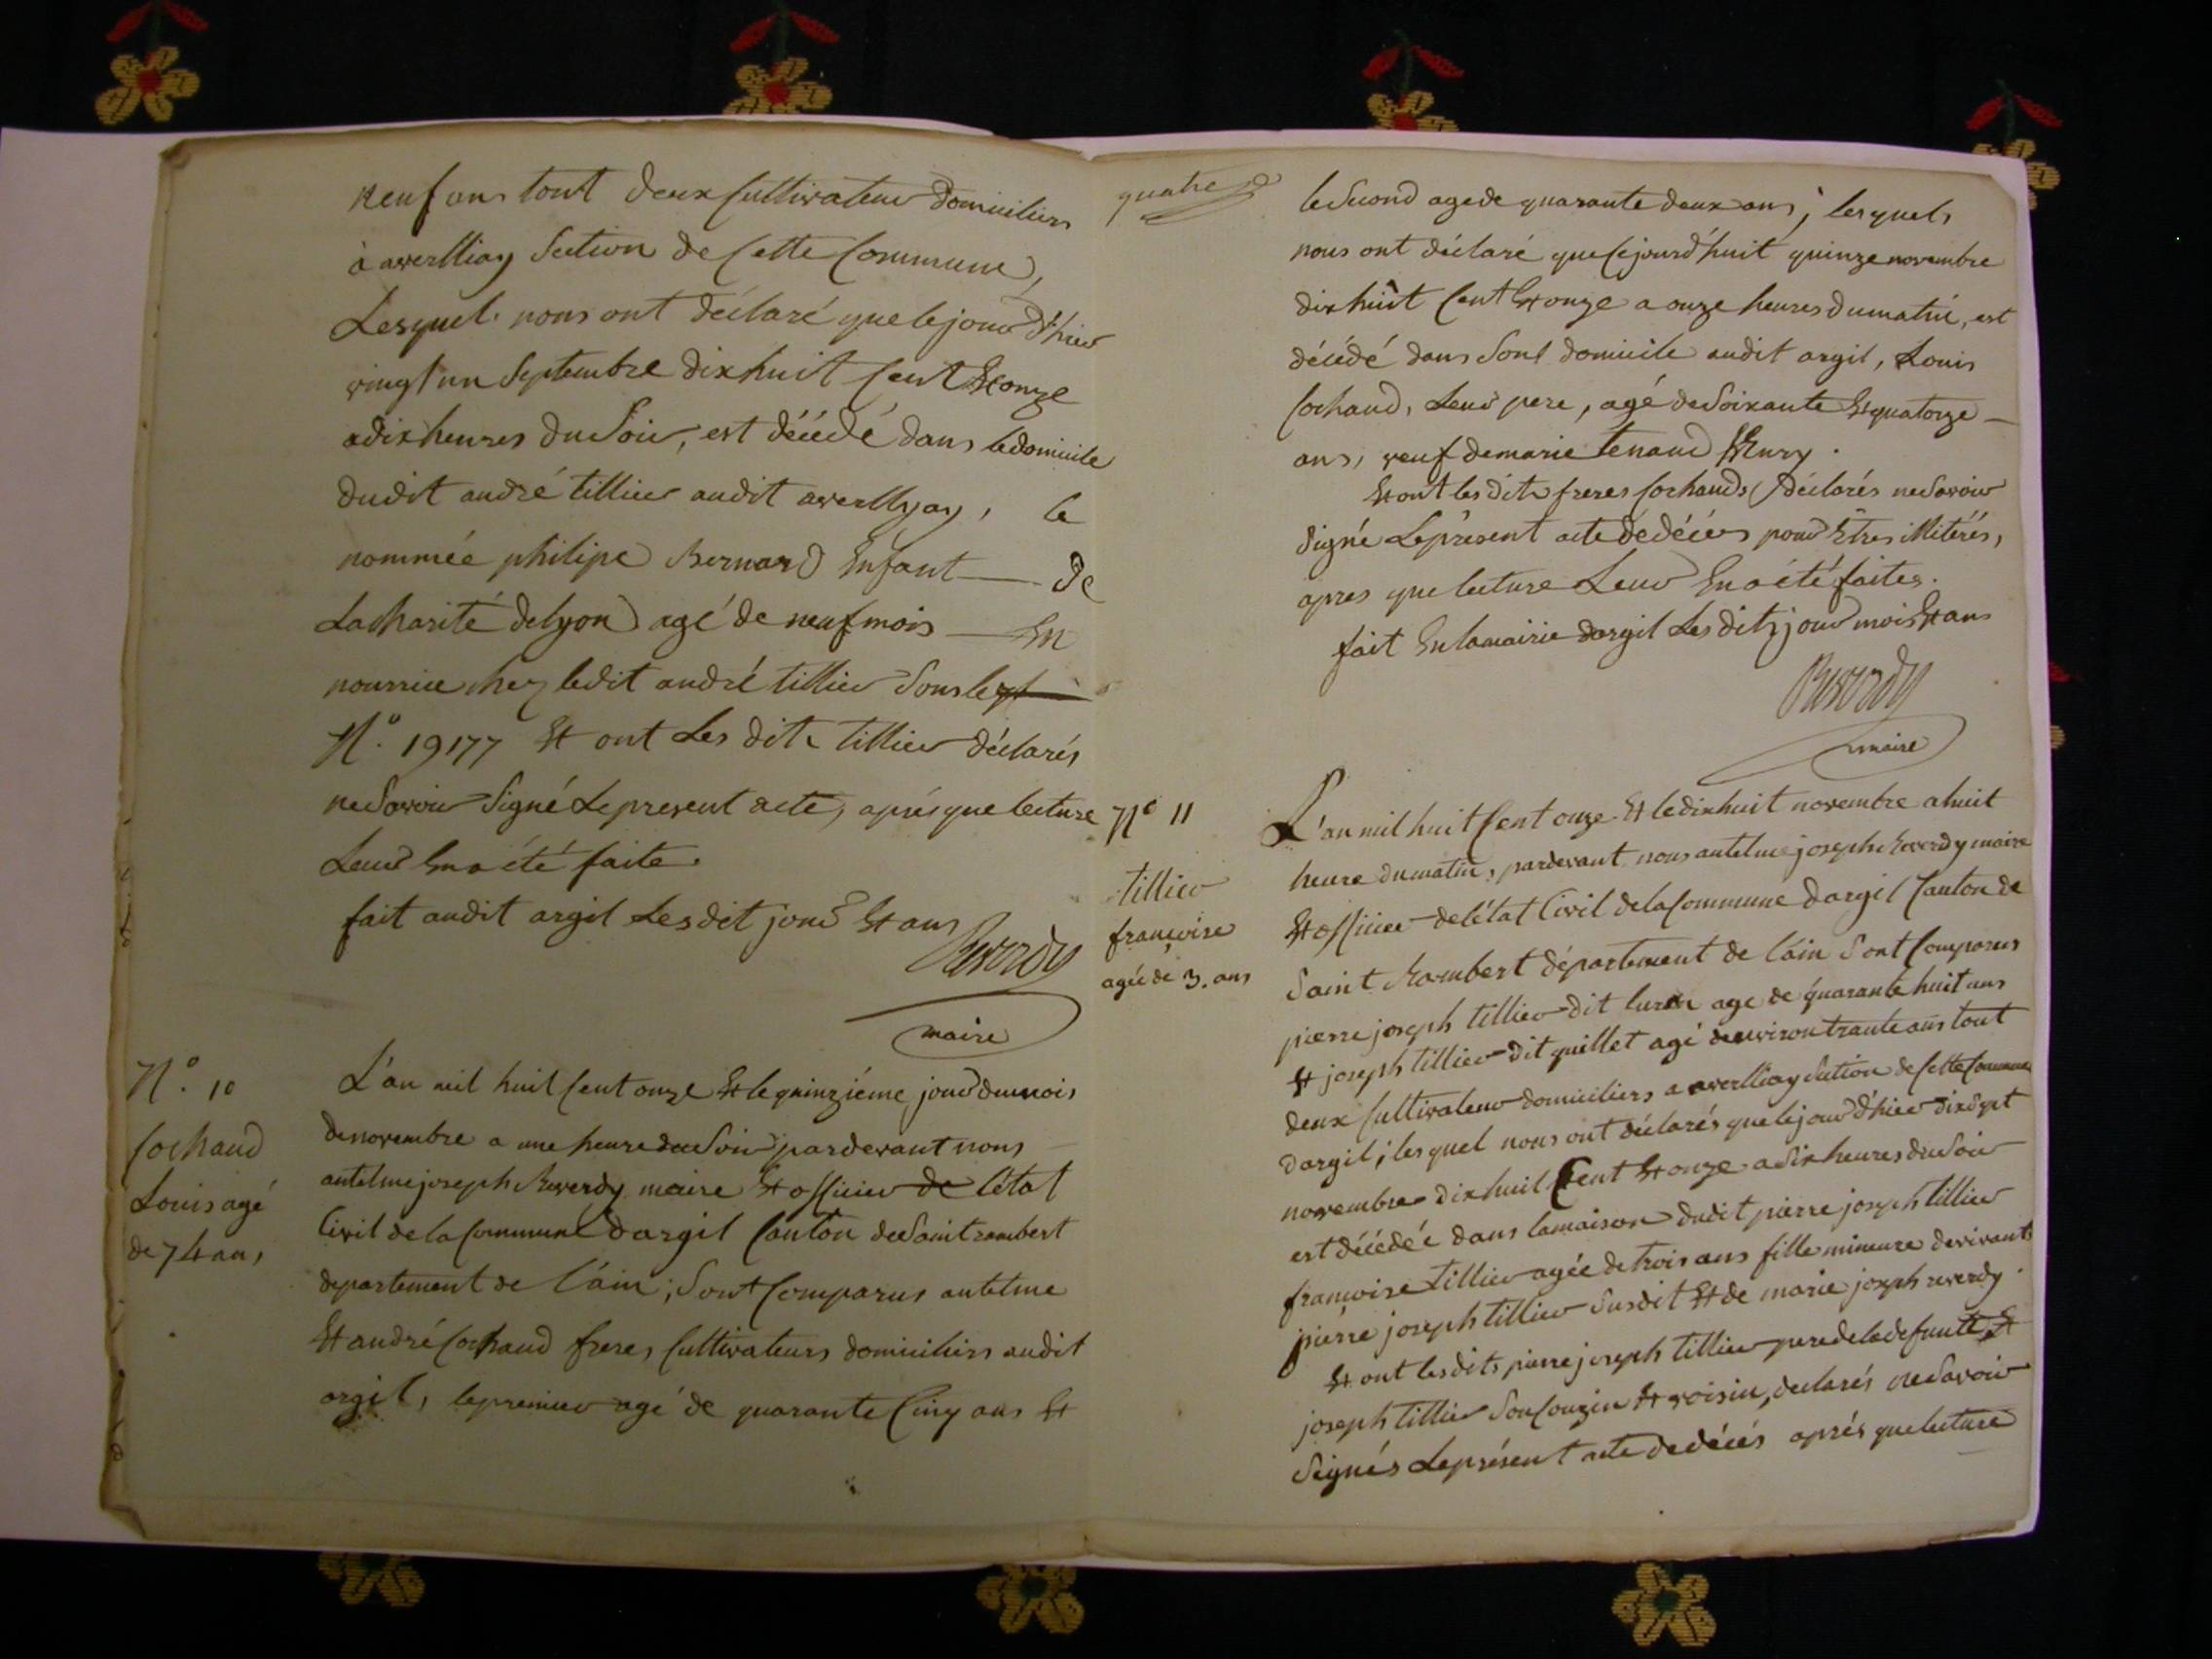 neuf ans tout deux Cultivateur domiciliers
à averlliay Section de Cette Commune,
Lesquel nous ont déclaré que le jour d'hier
vingt un Septembre dix huit Cent Et onze
a dix heures du Soir, est décédé dans le domicile
dudit andré tillier audit averllyay, le
nommée philipe Bernard Enfant — de
La charité de lyon agé de neuf mois — En
nourrice chez ledit andré tillier Sous le
N.º 19177 Et ont Les dits tillier déclarés
ne Savoir Signé Le present acte, aprés que lecture
Leur En a été faite.
fait audit argil Les dit jour Et ans
Reverdy
maire
N.º 10
Cochaud
Louis agé
de 74 ans
L'an mil huit Cent onze Et le quinziéme jour du mois
de novembre a une heure du Soir pardevant nous
antelme joseph Reverdy maire Et officier de l'état
Civil de la Commune d'argil Canton de Saint rambert
departement de l'ain; Sont Comparus antelme
Et andré Cochaud freres Cultivateurs domiciliers audit
argil, le premier agé de quarante Cinq ans Et
quatre
le Second age de quarante deux ans; lesquels
nous ont déclaré que Cejourd'huit quinze novembre
dix huit Cent Et onze a onze heures du matin, est
décédé dans Sont domicile audit argil, Louis
Cochaud, Leur pere, agé de Soixante Et quatorze —
ans, veuf de marie tenand
Et ont les dits freres Cochauds déclarés ne Savoir
Signé Le present acte de décées pour Etres illitérés,
apres que lecture Leur En a été faites.
fait En la mairie d'argil Les dits jour mois Et ans
Reverdy
maire
Nº 11
tillier
françoise
agée de 3. ans
L'an mil huit Cent onze Et le dix huit novembre a huit
heure du matin, pardevant nous antelme joseph Reverdy maire
Et officier de l'état Civil de la Commune d'argil Canton de
Saint Rambert département de l'ain Sont Comparus
pierre joseph tillier dit age de quarante huit ans
Et joseph tillier dit quillet agé denviron trante ans tout
deux Cultivateur domiciliers a averlliay Section de Cette Commune
d'argil; lesquel nous ont déclarés que le jour d'hier dix Sept
novembre dix huit Cent Et onze a Six heures du Soir
est décédée dans la maison dudit pierre joseph tillier
françoise tillier agée de trois ans fille mineure de vivants
pierre joseph tillier Susdit Et de marie joseph reverdy.
Et ont lesdits pierre joseph tillier pere de la defunte, Et
joseph tillier Son Couzin Et voisin, declarés ne Savoir
Signés Le présent acte de décés aprés que lecture